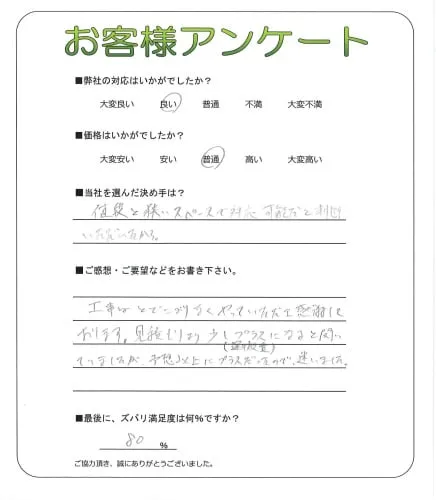 お客様アンケート
■弊社の対応はいかがでしたか？
大変良い 良い 普通 不満 大変不満
■価格はいかがでしたか？
大変安い 安い 普通 高い 大変高い
■当社を選んだ決め手は？
値段と狭いスペースで対応可能だと判断
いただいたから。
■ご感想・ご要望などをお書き下さい。
工事はとどこおりなくやっていただき感謝して
おります。見積りより少しプラスになると伺っ
ていましたが、予想以上にプラスだったので、迷いました。
■最後に、ズバリ満足度は何％ですか？
80 ％
ご協力頂き、誠にありがとうございました。